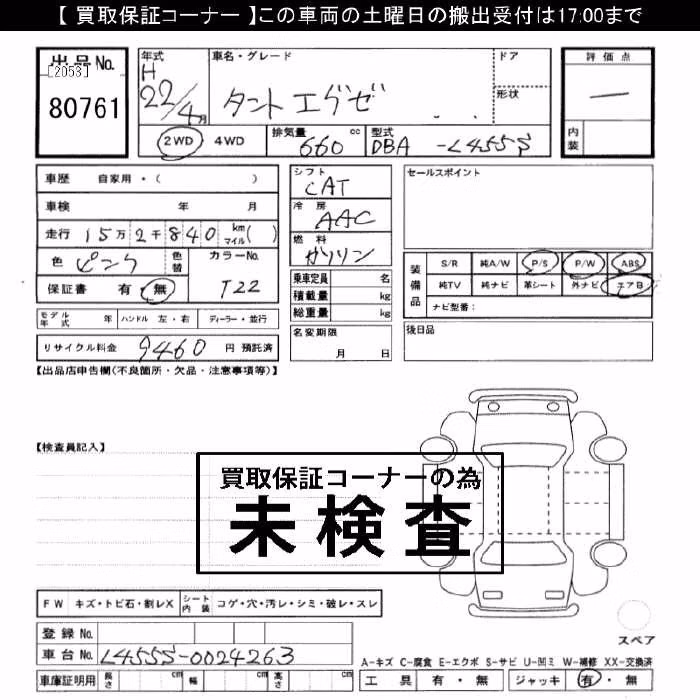 【 買取保証コーナー 】この車両の土曜日の搬出受付は17:00まで
出品No.
[2053]
80761
年式
H
22/4月
車名・グレード
タント エグゼ
ドア
形状
評価点
―
内装
2WD 4WD
排気量
660 cc
型式
DBA -L455S
車歴 自家用・( )
車検 年 月
走行 15万2千840 kmマイル( )
色 ピンク 色替
カラーNo.
T22
保証書 有・無
シフト
CAT
冷房
AAC
燃料
ガソリン
乗車定員 名
積載量 kg
総重量 kg
セールスポイント
装備品
S/R 純A/W P/S P/W ABS
純TV 純ナビ 革シート 外ナビ エアB
ナビ型番:
モデル年式 年 ハンドル 左・右 ディーラー・並行
リサイクル料金 9460 円 預託済
名変期限
月 日
後日品
【出品店申告欄(不良箇所・欠品・注意事項等)】
【検査員記入】
買取保証コーナーの為
未検査
FW キズ・トビ石・割レX シート内装 コゲ・穴・汚レ・シミ・破レ・スレ
登録No.
車台No. L455S-0024263
車庫証明用 長さ cm 幅 cm 高さ cm
スペア
A-キズ C-腐食 E-エクボ S-サビ U-凹ミ W-補修 XX-交換済
工具 有・無 ジャッキ 有・無